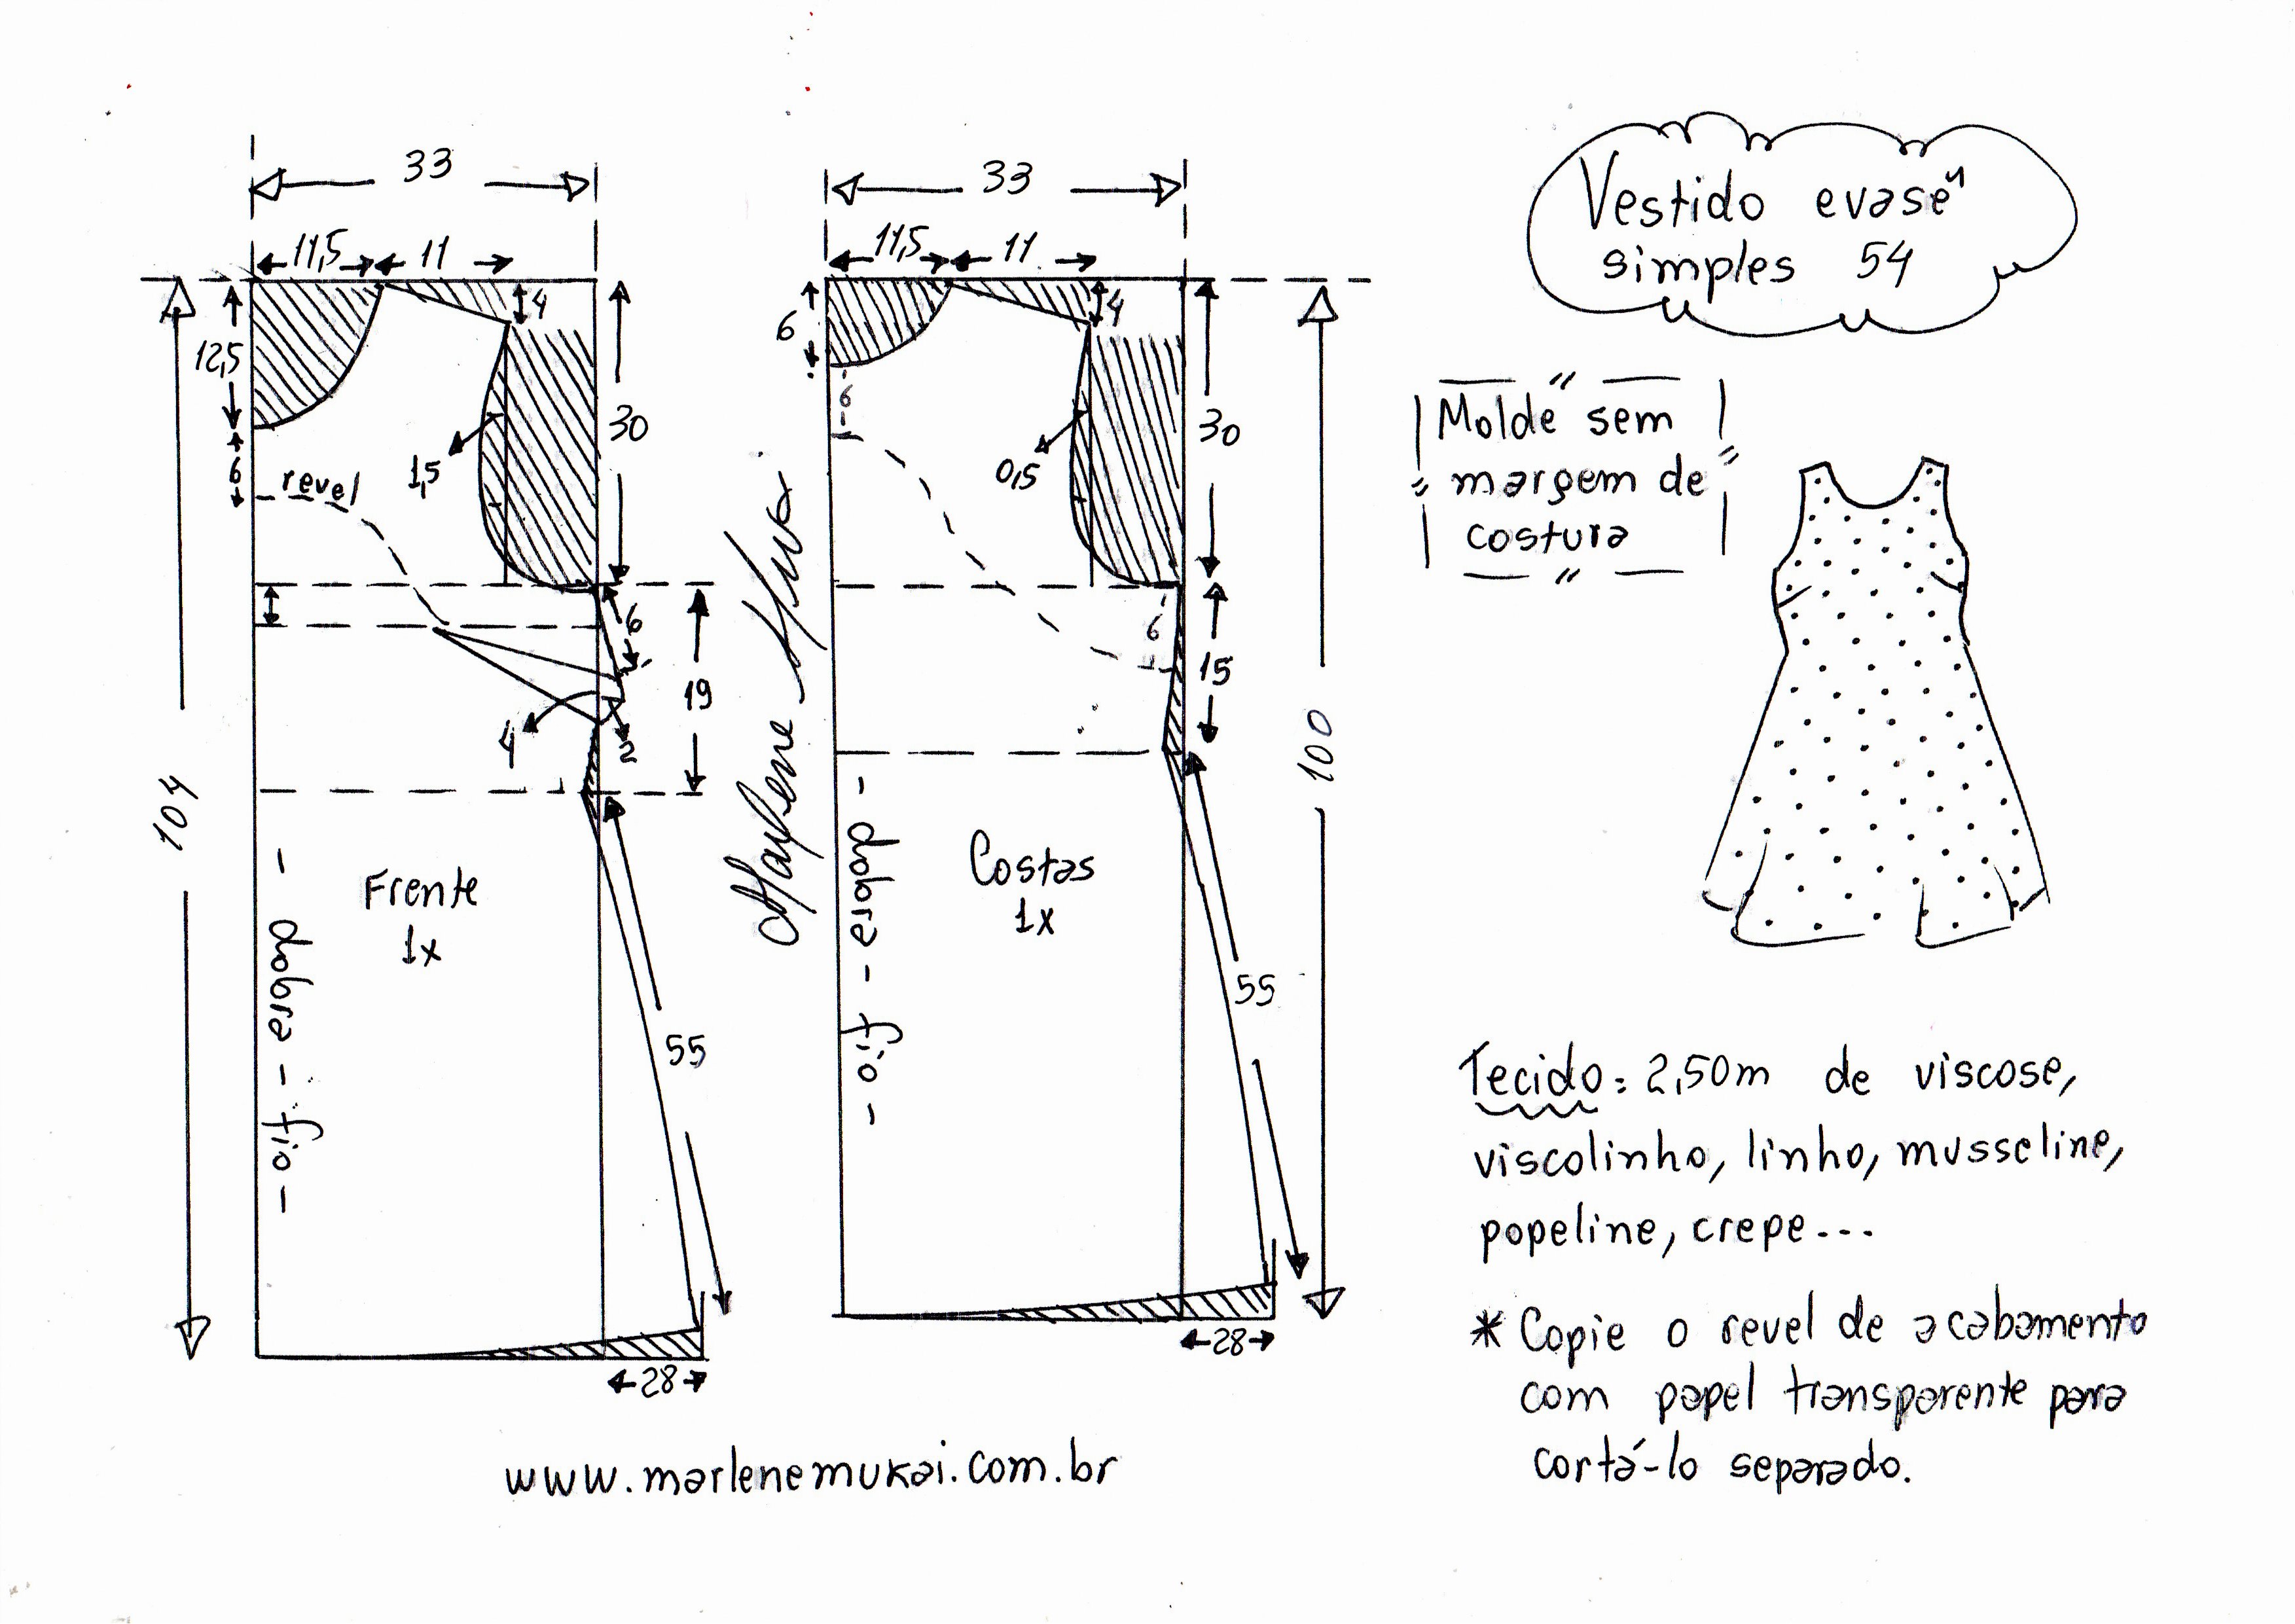 33
11,5
11
4
12,5
6
revel
1,5
30
6
19
4
2
104
Frente
1x
- dobra - fio -
55
28
Marlene Mukai
33
11,5
11
4
6
6
0,5
30
6
15
100
Costas
1x
- dobra - fio -
55
28
www.marlenemukai.com.br
Vestido evasê
simples 54
Molde sem
margem de
costura
Tecido: 2,50m de viscose,
viscolinho, linho, musseline,
popeline, crepe...
* Copie o revel de acabamento
com papel transparente para
cortá-lo separado.